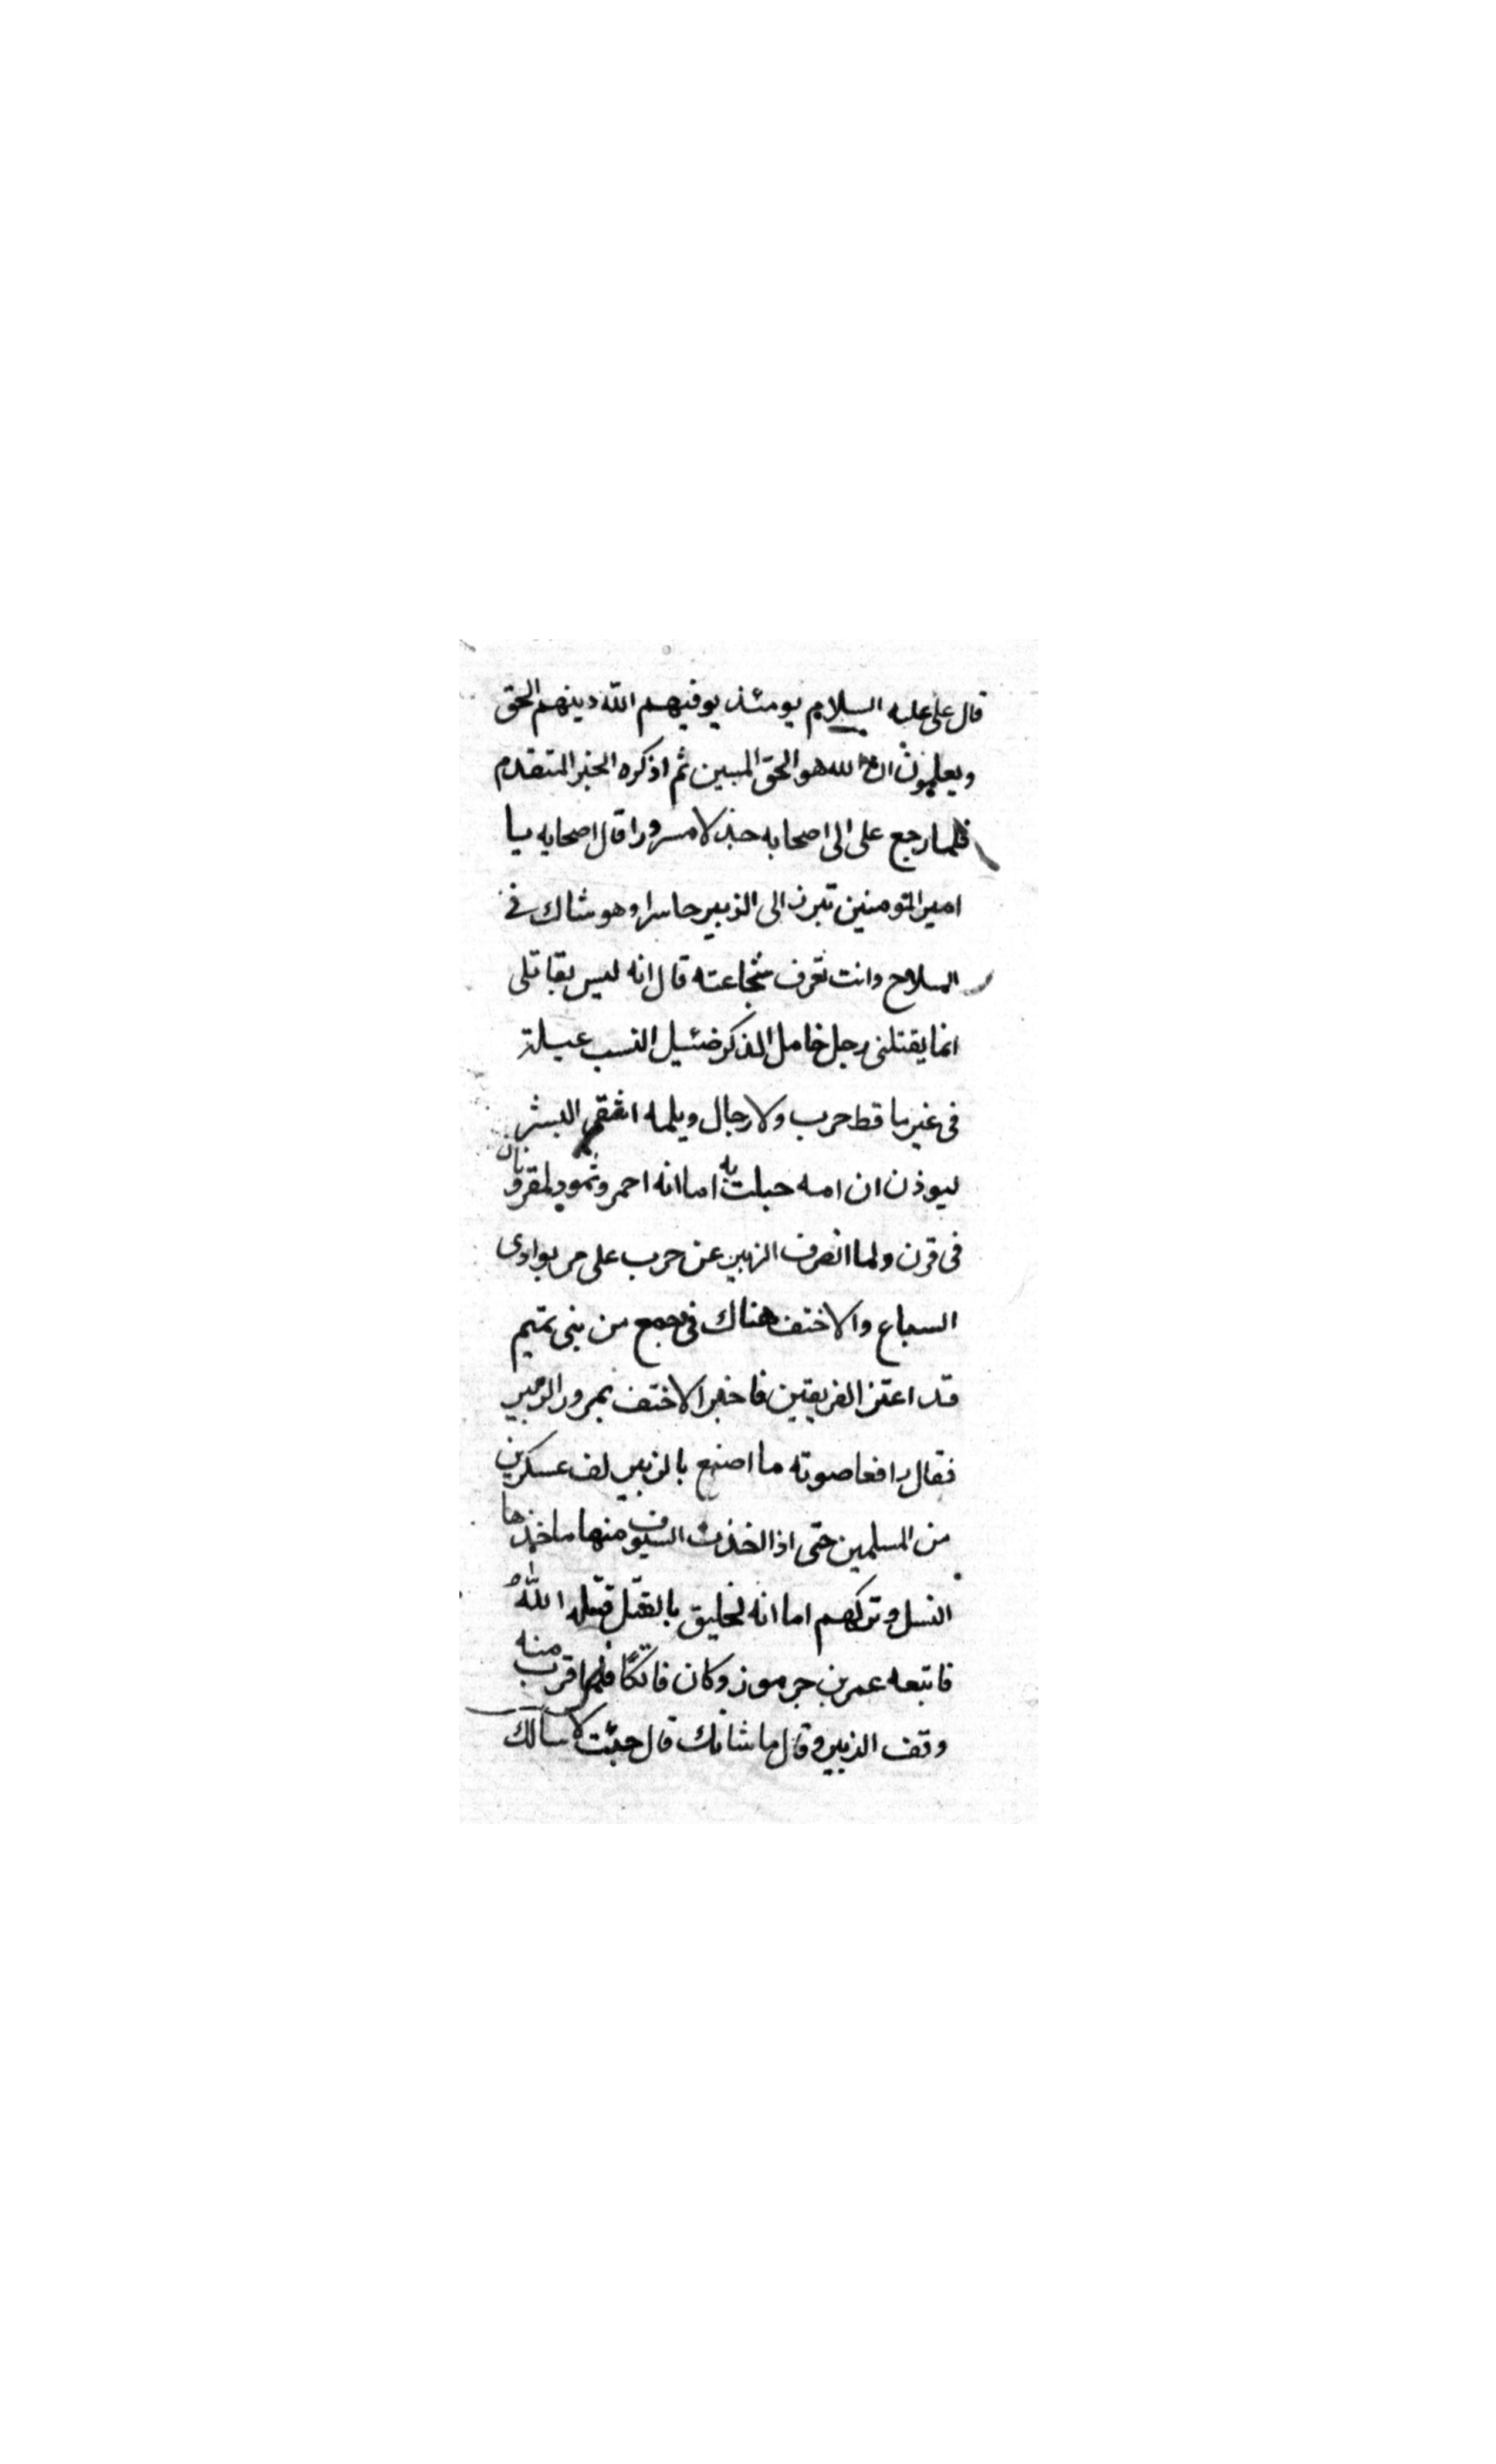 قال على عليه السلام يومئذ يوفيهم الله دينهم الحق
ويعلمون ان الله هو الحق المبين ثم اذكره الخبر المتقدم
فلما رجع على الى اصحابه جذلا مسرورا قال اصحابه يا
امير المؤمنين تبرز الى الزبير حاسرا وهو شاك فى
السلاح وانت تعرف شجاعته قال انه ليس بقاتلى
انما يقتلنى رجل خامل الذكر ضئيل النسب غيلة
فى غير ماقط حرب ولا رجال ويلمه اشقى البشر
ليوذن ان امه حبلت به اما انه احمر وثمود لمقرونان
فى قرن ولما انصرف الزبير عن حرب على مر بوادى
السباع والاخنف هناك فى جمع من بنى تميم
قد اعتزل الفريقين فاخبر الاخنف بمرور الزبير
فقال رافعا صوته ما اصنع بالزبير لف عسكرين
من المسلمين حتى اذا اخذت السيوف منها ماخذها
انسل وتركهم اما انه لخليق بالقتل قتله الله
فاتبعه عمر بن جرموز وكان فاتكا فلما قرب منه
وقف الزبير وقال ما شانك قال جئت لاسالك